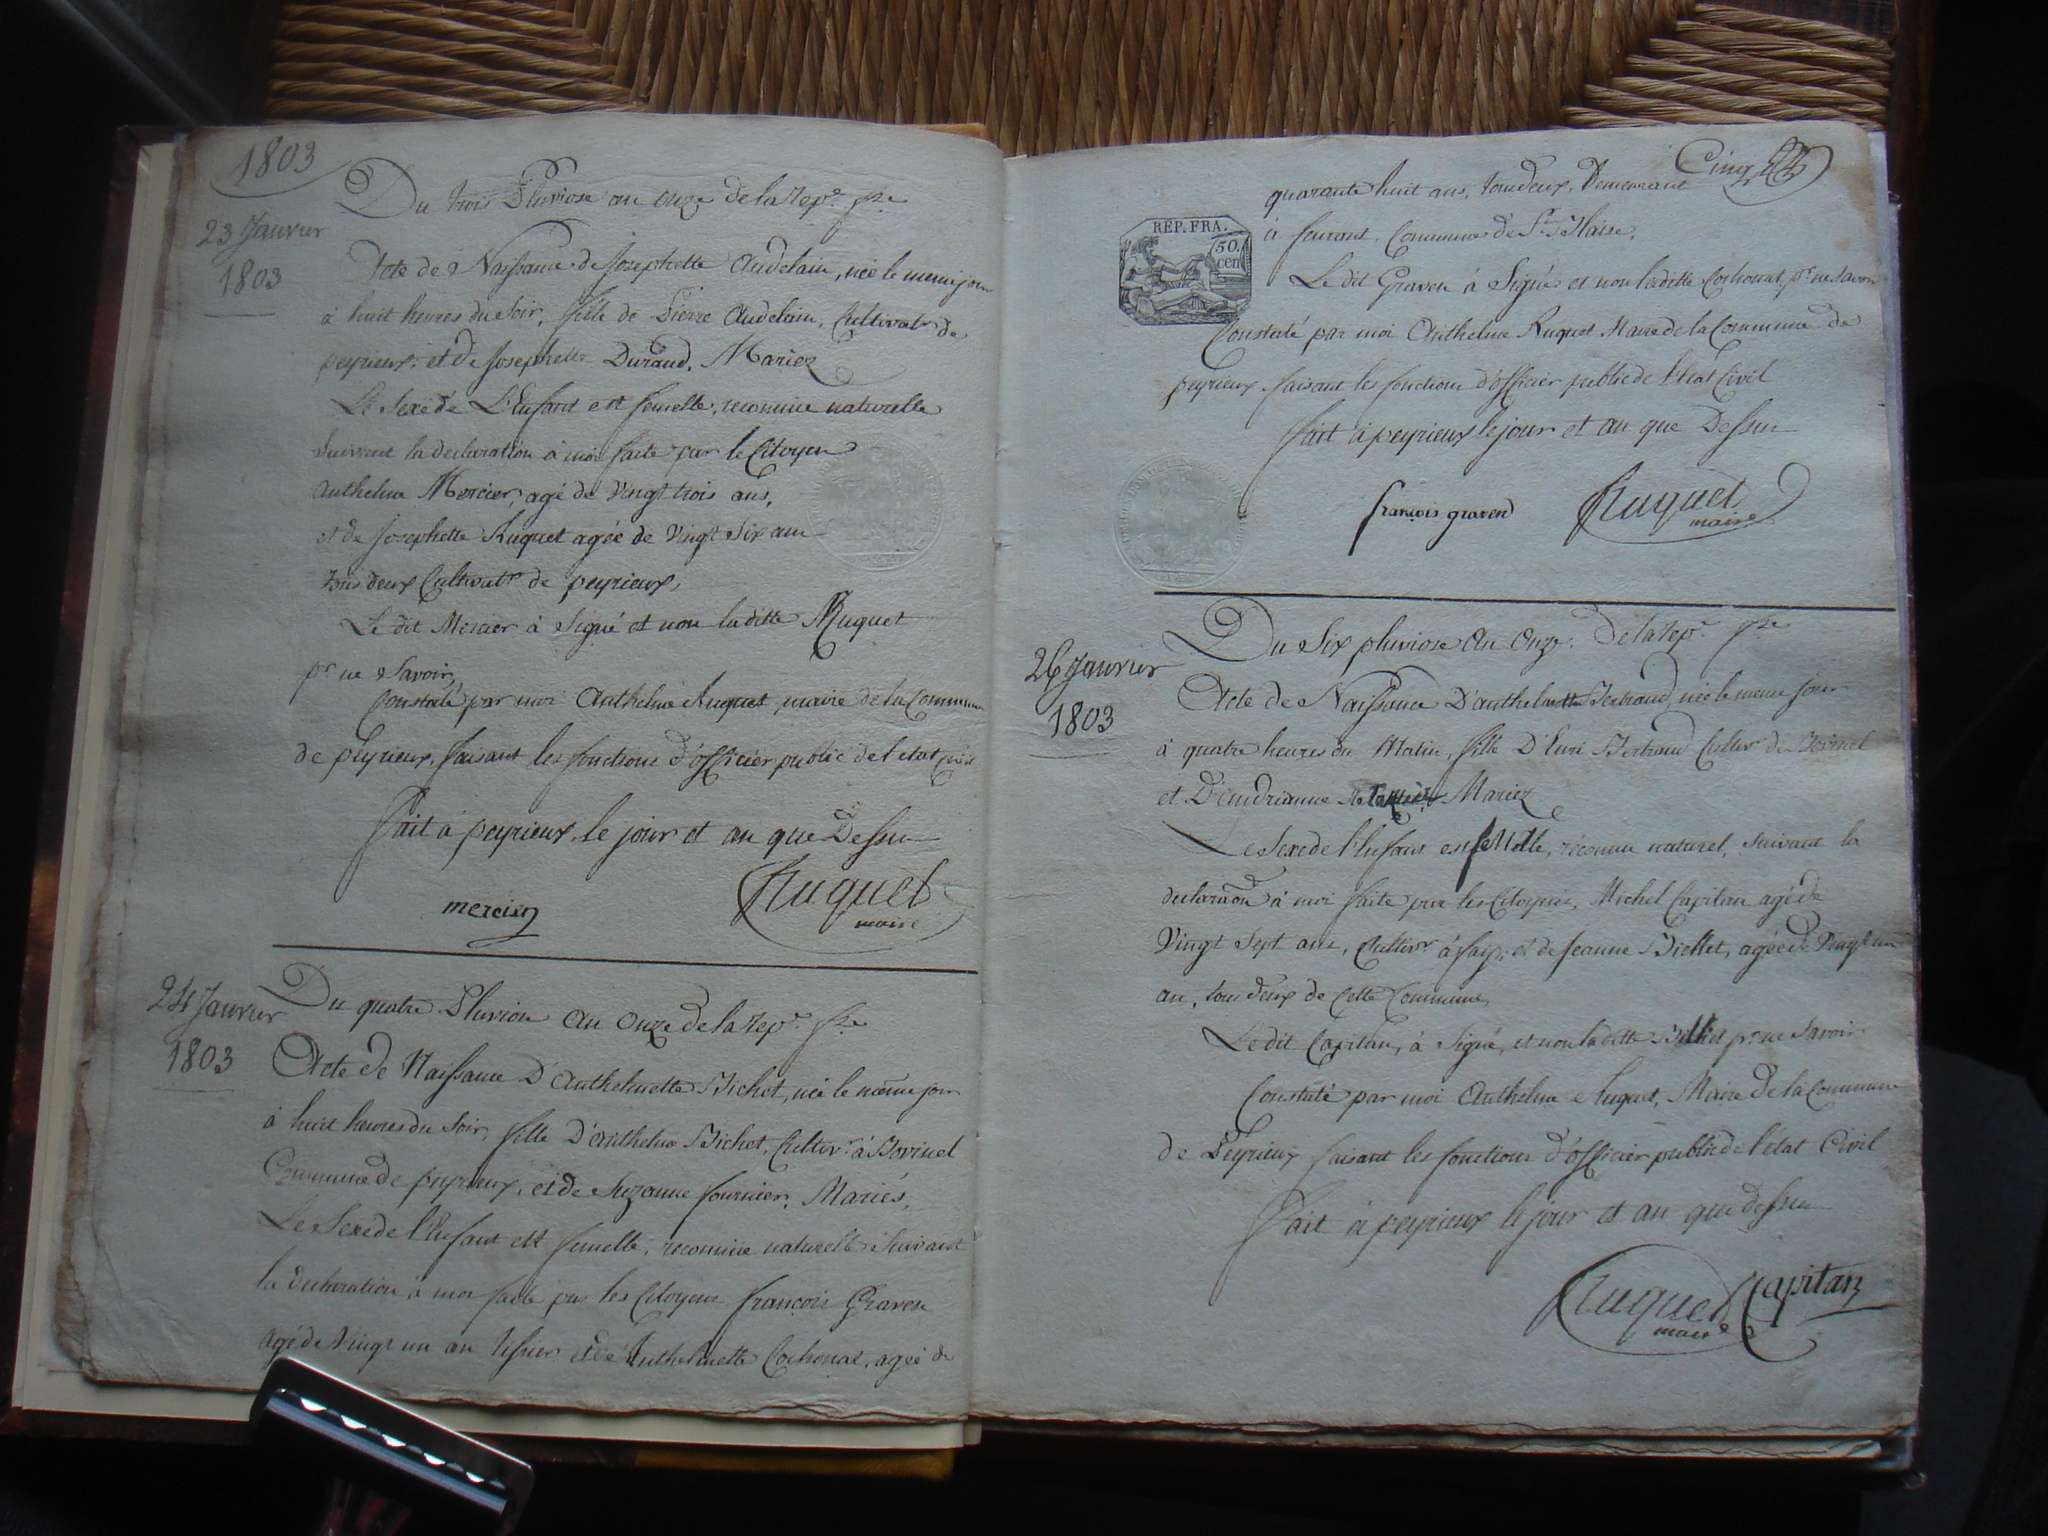 1803
23 Janvier
1803
Du trois Pluviose an onze de la Rep.e fse
Acte de Naissance de Josephette Audelain, née le meme jour
à huit heures du Soir, fille de Pierre Audelain, Cultivatr de
peyrieux, et de Josephette Durand, Mariez
Le Sexe de L'Enfant est femelle, reconnue naturelle
Suivant la declaration à moi faite par le Citoyen
Anthelme Mercier, agé de Vingt trois ans,
et de Josephette Ruquet agée de Vingt Six ans
tous deux Cultivatrs de peyrieux,
Le dit Mercier à Signé et non la ditte Ruquet
pr ne Savoir,
Constaté par moi Anthelme Ruquet maire de la Commune
de peyrieux, faisant les fonctions d'officier public de l'etat civil
fait à peyrieux, le jour et an que Dessus
mercier
Ruquet
maire
24 Janvier
1803
Du quatre Pluviose an onze de la Rep.e fse
Acte de Naissance D'Anthelmette Bichet, née le même jour
à huit heures du Soir, fille D'Anthelme Bichet, Cultivr à Bovinel
Commune de peyrieux, et de Suzanne fournier, Mariés,
Le Sexe de l'Enfant est femelle, reconnue naturelle Suivant
la declaration à moi faite par les Citoyens françois Graven
agé de Vingt un an et de Anthelmette Cochonat, agée de
Cinq
quarante huit ans, tous deux, Demeurant
à Commune de St Blaise,
REP. FRA.
50.
cen
Le dit Graven à Signé et non la ditte Cochonat, pr ne Savoir
Constaté par moi Anthelme Ruquet Maire de la Commune de
peyrieux faisant les fonctions d'officier public de l'Etat Civil
fait à peyrieux le jour et an que Dessus
françois graven
Ruquet
maire
26 Janvier
1803
Du Six pluviose An Onze De la Rep.e fse
Acte de Naissance D'anthelmette Bertrand, née le meme Jour
à quatre heures du Matin, fille D'Emri Bertrand Cultivr de Bovinel
et D'andrianne Mariez
Le Sexe de l'Enfant est femelle, reconnue naturel, suivant la
declaraõn à moi faite par les Citoyens, Michel Capitan agé de
Vingt Sept ans, Cultivr à et de Jeanne Billiet, agée de Vingt un
an, tous deux de Cette Commune,
Le dit Capitan, à Signé, et non la ditte Billiet pr ne Savoir
Constaté par moi Anthelme Ruquet, Maire de la Commune
de Peyrieux faisant les fonctions d'officier public de l'état Civil
fait à peyrieux le jour et an que dessus
Ruquet Capitan
maire